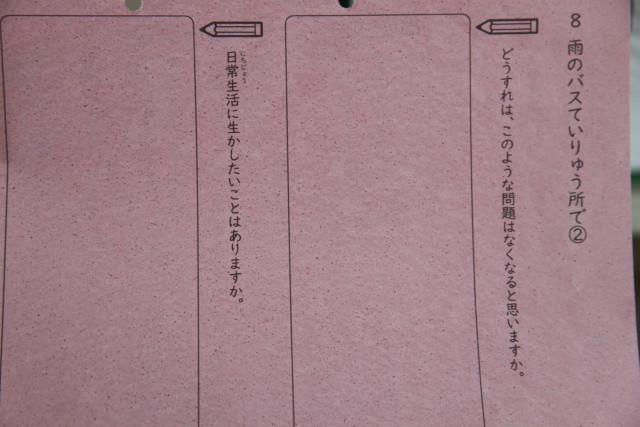 8 雨のバスていりゅう所で②
どうすれは、このような問題はなくなると思いますか。
日常生活に生かしたいことはありますか。
にちじょう